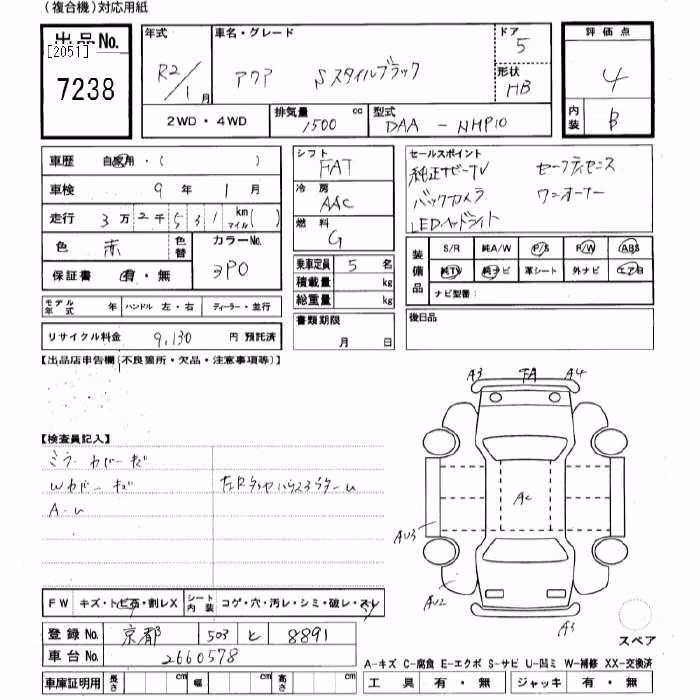 (複合機)対応用紙
出品No. [2051] 7238
年式 R2/1月
車名・グレード アクア Sスタイルブラック
ドア 5
形状 HB
2WD・4WD
排気量 1500 cc
型式 DAA-NHP10
評価点 4
内装 B
車歴 自家用・( )
車検 9年 1月
走行 3万2千531 km マイル( )
色 赤 色替
カラーNo. 3P0
保証書 有・無
モデル年式 年 ハンドル 左・右 ディーラー・並行
リサイクル料金 9,130 円 預託済
シフト FAT
冷房 AAC
燃料 G
乗車定員 5 名
積載量 kg
総重量 kg
書類期限 月 日
セールスポイント
純正ナビTV セーフティセンス
バックカメラ ワンオーナー
LEDヘッドライト
装備品 S/R 純A/W P/S P/W ABS
純TV 純ナビ 革シート 外ナビ エアB
ナビ型番:
後日品
【出品店申告欄(不良箇所・欠品・注意事項等)】
【検査員記入】
ミラーカバーキズ
Wカバーキズ
A-U
A3 FA A4
AC
AU3
AU2
A3
スペア
FW キズ・トビ石・割レX シート内装 コゲ・穴・汚レ・シミ・破レ・スレ
登録No. 京都 503 と 8891
車台No. 2660578
車庫証明用 長さ cm 幅 cm 高さ cm
A-キズ C-腐食 E-エクボ S-サビ U-凹ミ W-補修 XX-交換済
工具 有・無 ジャッキ 有・無